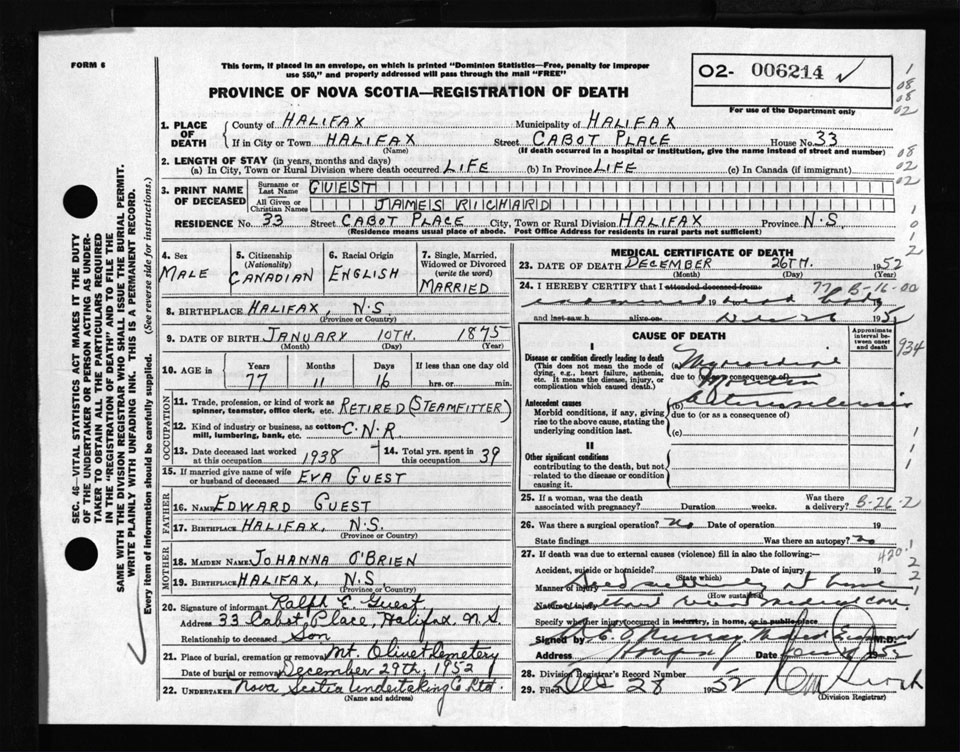 FORM 6
This form, if placed in an envelope, on which is printed "Dominion Statistics—Free, penalty for improper
use $50," and properly addressed will pass through the mail "FREE"
PROVINCE OF NOVA SCOTIA—REGISTRATION OF DEATH
O2- 006214 ✓
For use of the Department only
SEC. 46—VITAL STATISTICS ACT MAKES IT THE DUTY
OF THE UNDERTAKER OR PERSON ACTING AS UNDER-
TAKER TO OBTAIN ALL THE PARTICULARS REQUIRED
IN THE "REGISTRATION OF DEATH" AND TO FILE THE
SAME WITH THE DIVISION REGISTRAR WHO SHALL ISSUE THE BURIAL PERMIT.
WRITE PLAINLY WITH UNFADING INK. THIS IS A PERMANENT RECORD.
Every item of information should be carefully supplied. (See reverse side for instructions.)
1. PLACE OF DEATH County of HALIFAX Municipality of HALIFAX
If in City or Town HALIFAX Street CABOT PLACE House No. 33
(Name) (If death occurred in a hospital or institution, give the name instead of street and number)
2. LENGTH OF STAY (in years, months and days)
(a) In City, Town or Rural Division where death occurred LIFE (b) In Province LIFE (c) In Canada (if immigrant)
3. PRINT NAME OF DECEASED Surname or Last Name GUEST
All Given or Christian Names JAMES RICHARD
RESIDENCE No. 33 Street CABOT PLACE City, Town or Rural Division HALIFAX Province N.S.
(Residence means usual place of abode. Post Office Address for residents in rural parts not sufficient)
4. Sex MALE
5. Citizenship (Nationality) CANADIAN
6. Racial Origin ENGLISH
7. Single, Married, Widowed or Divorced (write the word) MARRIED
8. BIRTHPLACE HALIFAX, N.S.
(Province or Country)
9. DATE OF BIRTH JANUARY 10TH. 1875
(Month) (Day) (Year)
10. AGE in Years 77 Months 11 Days 16 If less than one day hrs. or min.
OCCUPATION
11. Trade, profession, or kind of work as spinner, teamster, office clerk, etc. RETIRED (STEAMFITTER)
12. Kind of industry or business, as cotton mill, lumbering, bank, etc. C.N.R
13. Date deceased last worked at this occupation 1938
14. Total yrs. spent in this occupation 39
15. If married give name of wife or husband of deceased EVA GUEST
FATHER
16. NAME EDWARD GUEST
17. BIRTHPLACE HALIFAX, N.S.
(Province or Country)
MOTHER
18. MAIDEN NAME JOHANNA O'BRIEN
19. BIRTHPLACE HALIFAX, N.S.
(Province or Country)
20. Signature of informant Ralph E. Guest
Address 33 Cabot Place, Halifax, N.S
Relationship to deceased Son
21. Place of burial, cremation or removal Mt. Olivet Cemetery
Date of burial or removal December 29th, 1952
22. UNDERTAKER Nova Scotia Undertaking Co Ltd.
(Name and address)
MEDICAL CERTIFICATE OF DEATH
23. DATE OF DEATH DECEMBER 26TH. 1952
(Month) (Day) (Year)
77 B-16-00
24. I HEREBY CERTIFY that I attended deceased from
examined 19 dead body
and last saw h alive on Dec 26 195
CAUSE OF DEATH
Approximate interval between onset and death
934
I
Disease or condition directly leading to death
(This does not mean the mode of dying, e.g., heart failure, asthenia, etc. It means the disease, injury, or complication which caused death.)
(a)
due to (or as a consequence of)
Antecedent causes
Morbid conditions, if any, giving rise to the above cause, stating the underlying condition last.
(b)
due to (or as a consequence of)
(c)
II
Other significant conditions
contributing to the death, but not related to the disease or condition causing it.
25. If a woman, was the death associated with pregnancy? Duration weeks. Was there a delivery? B-26-2
26. Was there a surgical operation? no Date of operation 19
State findings Was there an autopsy? no
27. If death was due to external causes (violence) fill in also the following:— 420.1
Accident, suicide or homicide? Date of injury 19
(State which)
Manner of injury Died suddenly at home
(How sustained)
Nature of injury without recent medical care
Specify whether injury occurred in industry, in home, or in public place
Signed by Murray M.D.
Address Date 195
28. Division Registrar's Record Number
29. Filed Dec 28 1952
(Division Registrar)